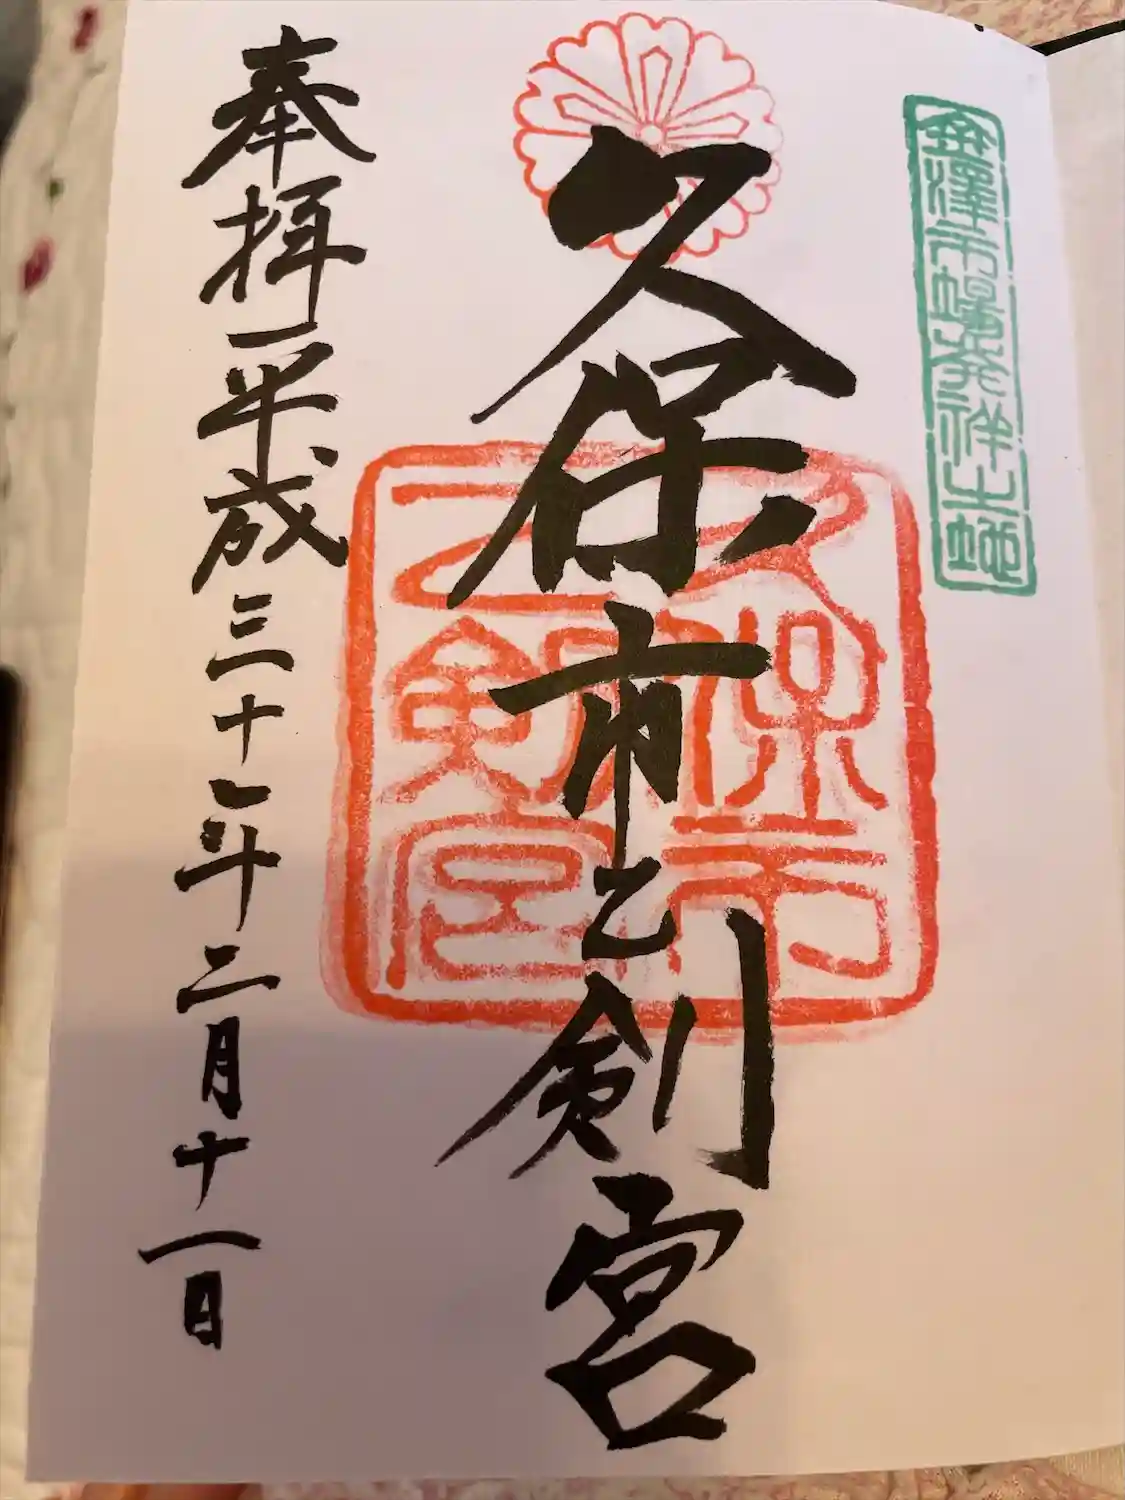 金澤市場発祥之地
久保市乙剣宮
久保市
乙剣宮
奉拝平成三十一年二月十一日